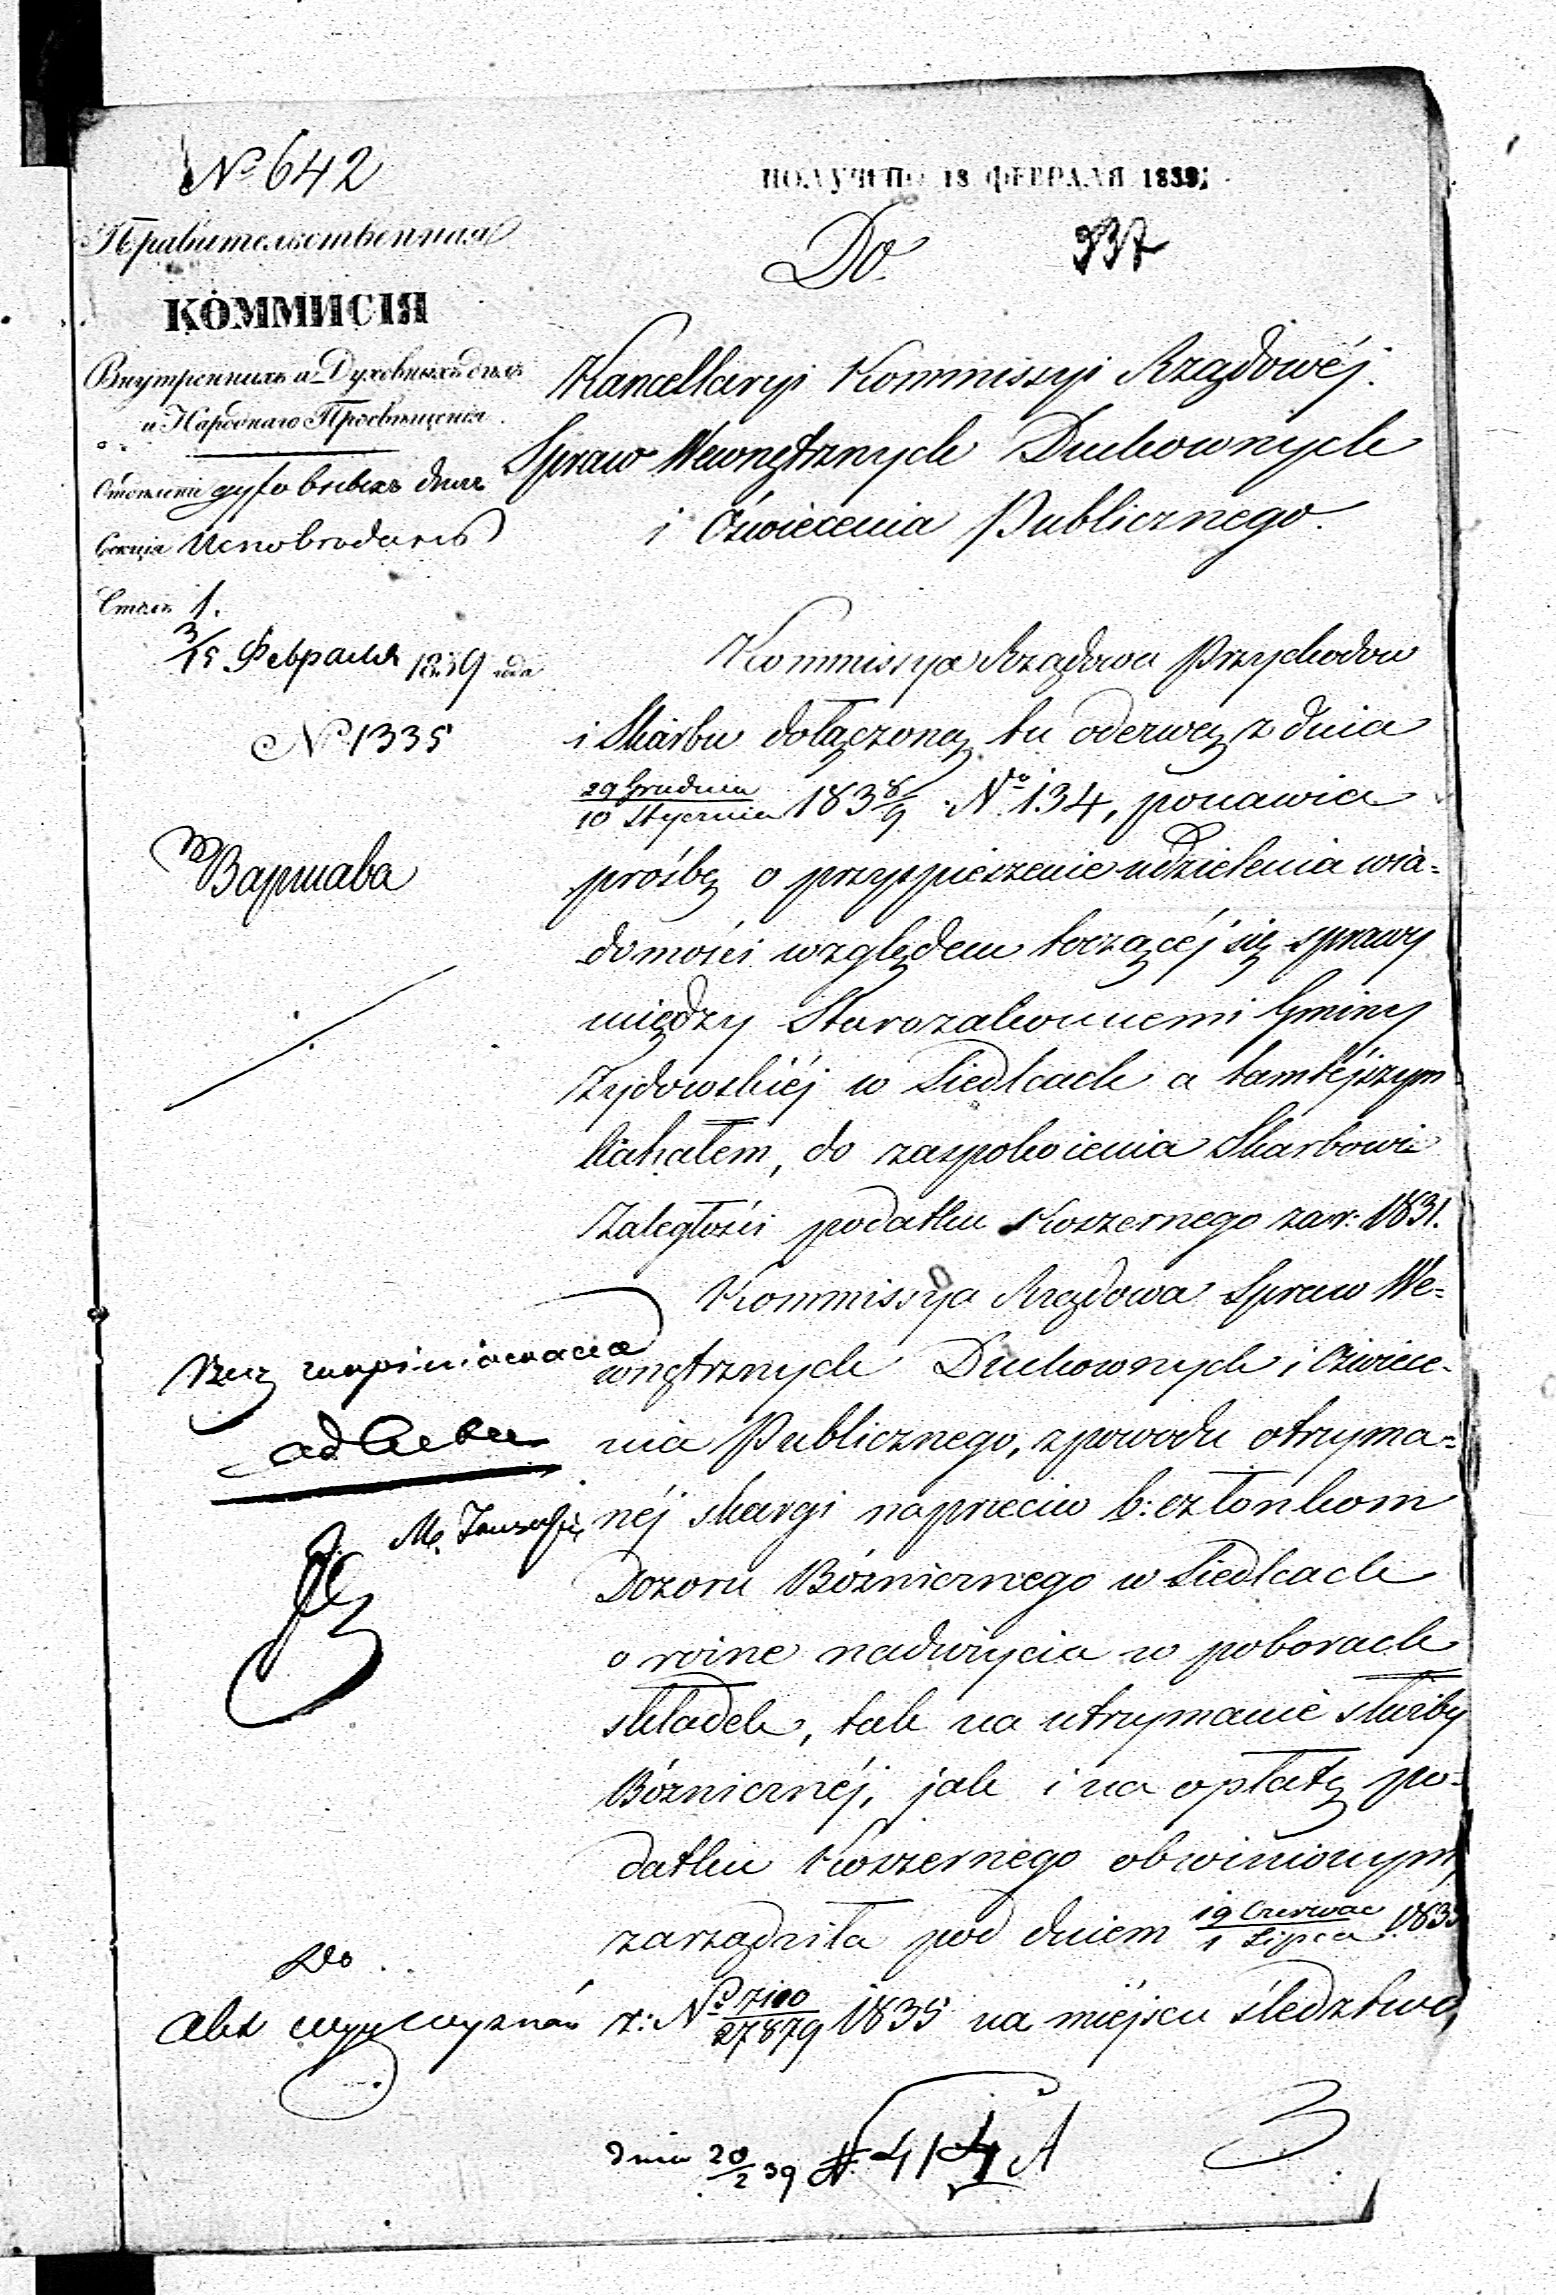 № 642
ПОЛУЧЕНО 18 ФЕВРАЛЯ 1839
Правительственная
КОММИСІЯ
Внутреннихъ и Духовныхъ дѣлъ
и Народнаго Просвѣщенія
Отдѣленіе духовныхъ дѣлъ
Секція Исповѣданій
Столъ 1.
3/15 Февраля 1839 года
№ 1335
Варшава
Do
337
Kancellaryi Kommissyi Rządowéj
Spraw Wewnętrznych Duchownych
i Oświecenia Publicznego.
Kommissya Rządowa Przychodów
i Skarbu dołączoną tu odezwą z dnia
29 Grudnia/10 Stycznia 1838/9 No 134, ponawia
prośbę o przyspieszenie udzielenia wia=
domości względem toczącéj się sprawy
między Starozakonnemi Gminy
Żydowskiéj w Siedlcach a tamtéjszym
Kahałem, do zaspokoienia Skarbowi
Zaległości podatku Koszernego za r: 1831.
Kommissya Rządowa Spraw We=
wnętrznych Duchownych i Oświece-
nia Publicznego, z powodu otrzyma=
néj skargi naprzeciw b: członkom
Dozoru Bóznicznego w Siedlcach
o rożne nadużycia w poborach
składek, tak na utrzymanie służby
Bózniczněj, jak i na opłatę po=
datku Koszernego obwinionym,
zarządziła pod dniem 19 Czerwca/1 Lipca 183
r: No 7100/27879 1835 na miéjscu śledztwo,
ad acta
Do
akt
dnia 20/2 39 N 414